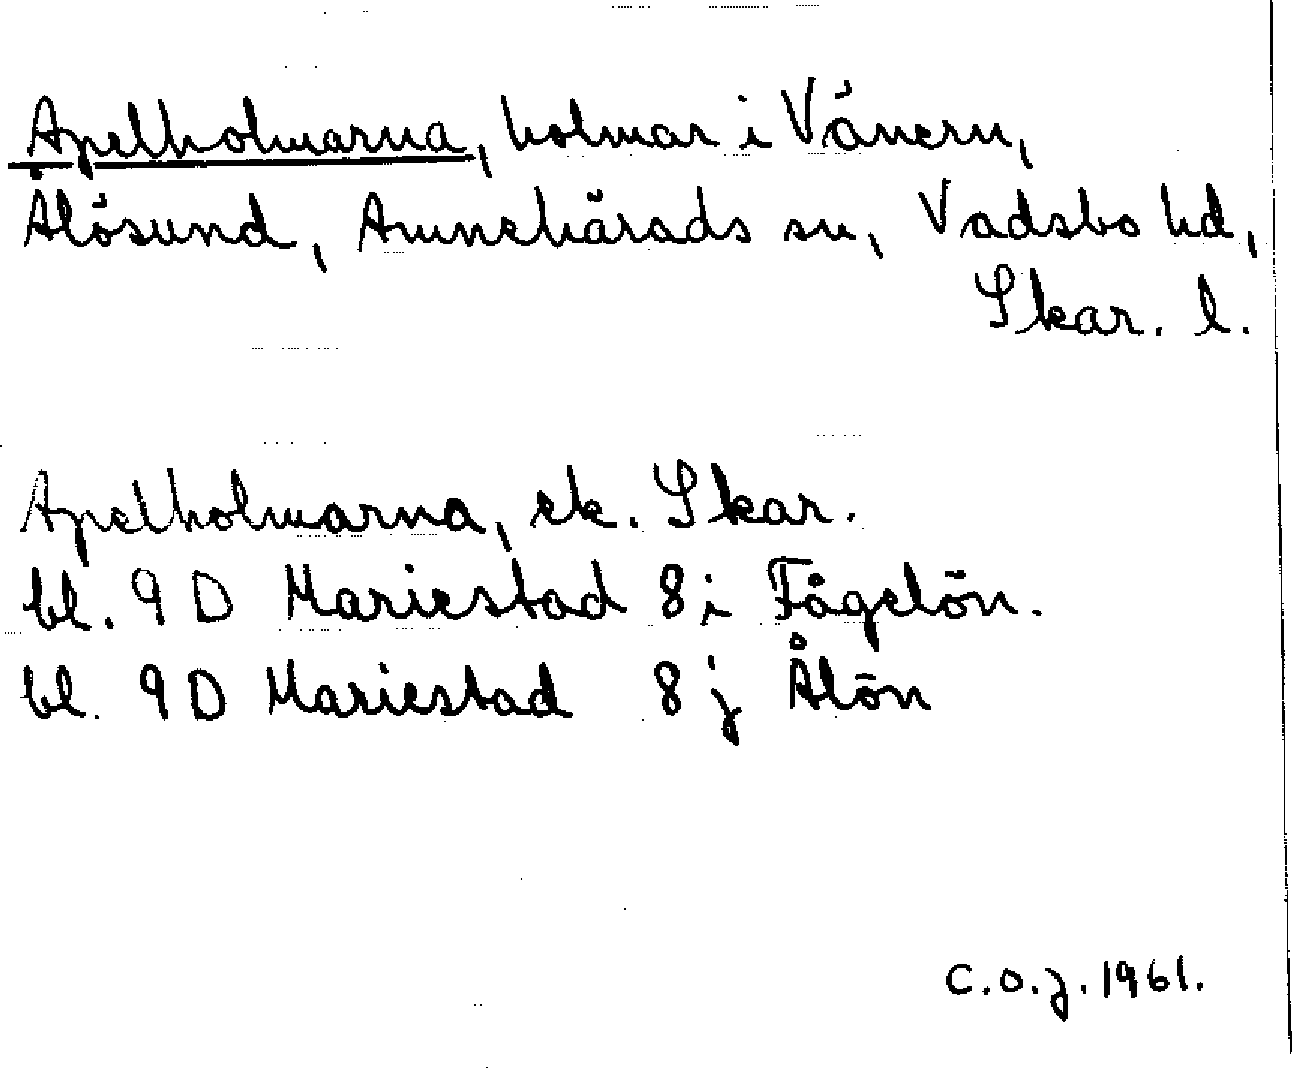 Apelholmarna, holmar i Vänern,
Ålösund, Amnehärads sn, Vadsbo hd,
Skar. l.
Apelholmarna, ek. Skar.
bl. 9 D Mariestad 8 i Fågelön.
bl. 9 D Mariestad 8 j Ålön
C.O.J. 1961.